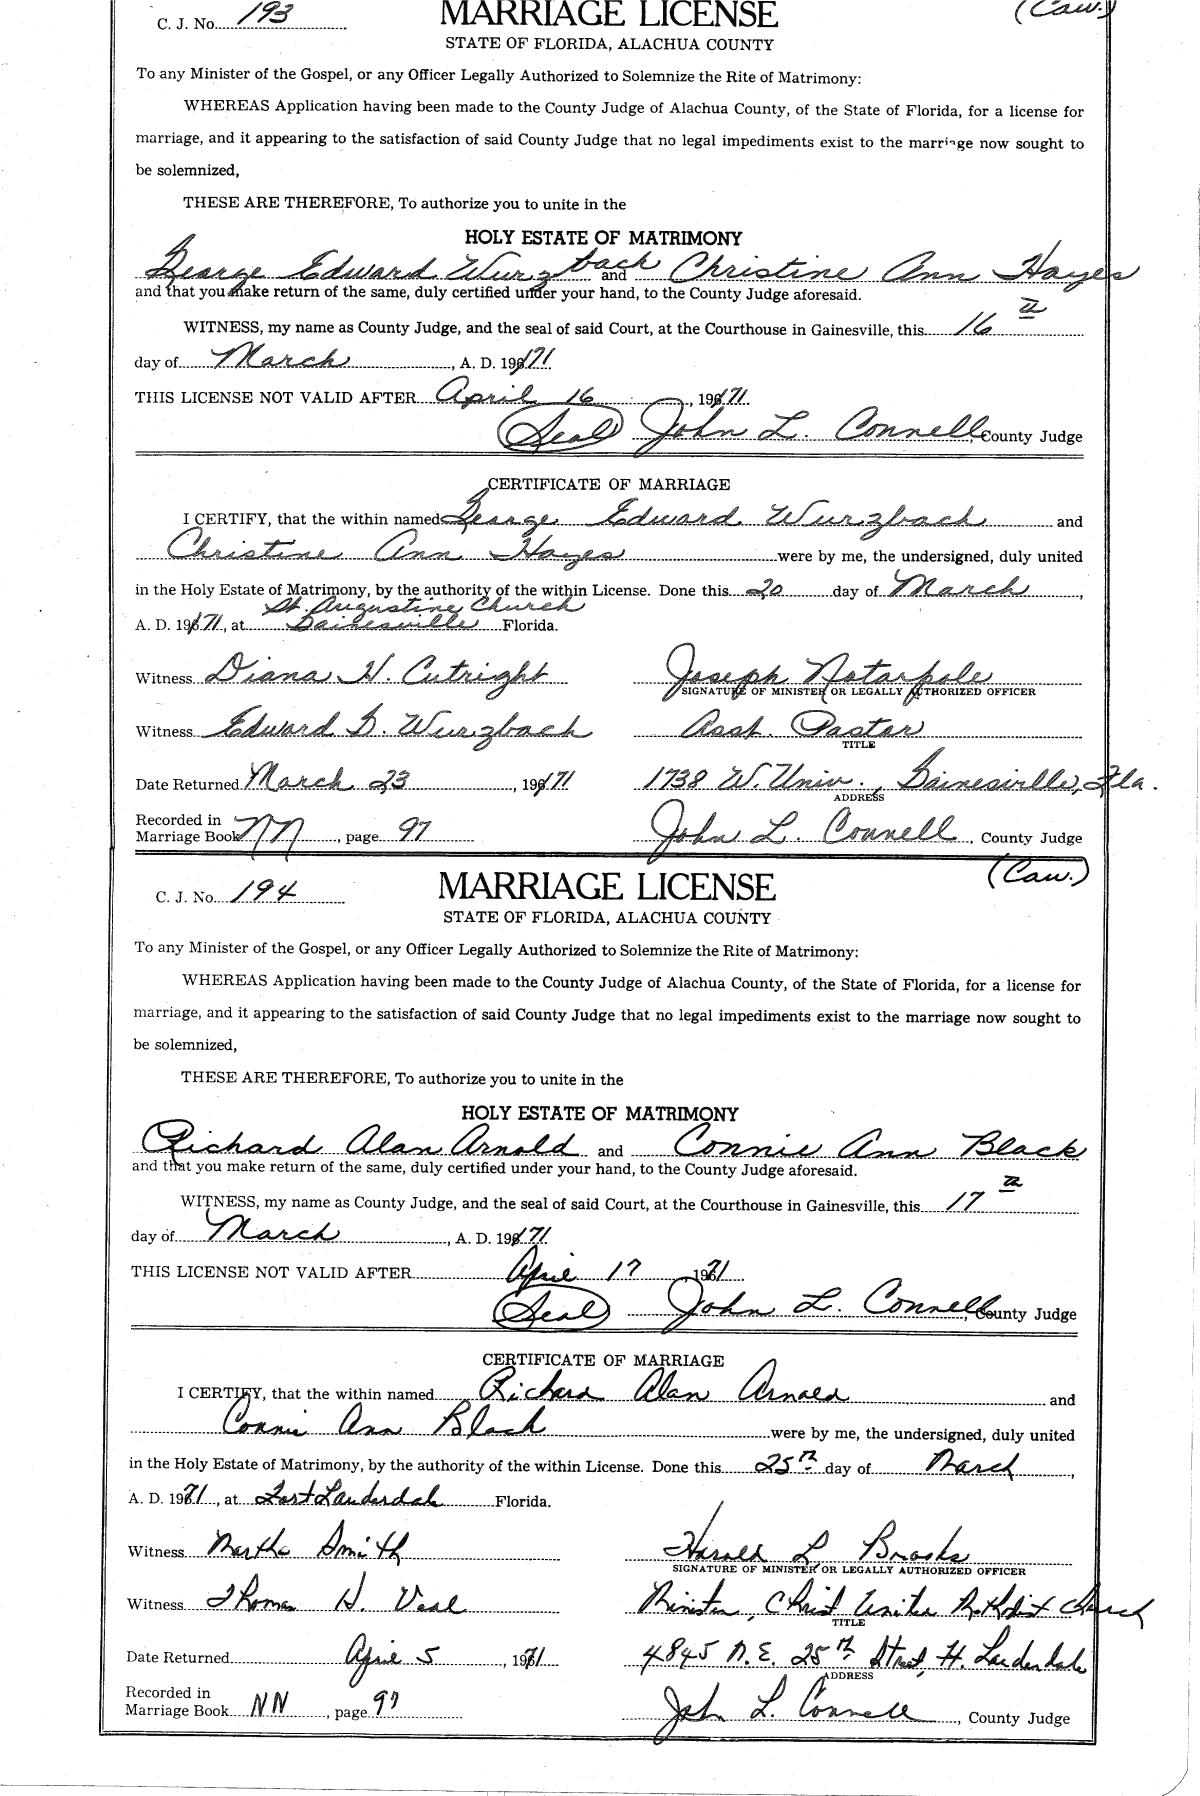 C. J. No. 193
MARRIAGE LICENSE
(Cau.)
STATE OF FLORIDA, ALACHUA COUNTY
To any Minister of the Gospel, or any Officer Legally Authorized to Solemnize the Rite of Matrimony:
WHEREAS Application having been made to the County Judge of Alachua County, of the State of Florida, for a license for
marriage, and it appearing to the satisfaction of said County Judge that no legal impediments exist to the marriage now sought to
be solemnized,
THESE ARE THEREFORE, To authorize you to unite in the
HOLY ESTATE OF MATRIMONY
George Edward Wurzbach and Christine Ann Hayes
and that you make return of the same, duly certified under your hand, to the County Judge aforesaid.
WITNESS, my name as County Judge, and the seal of said Court, at the Courthouse in Gainesville, this 16th
day of March, A. D. 1971
THIS LICENSE NOT VALID AFTER April 16, 1971
(Seal) John L. Connell County Judge
CERTIFICATE OF MARRIAGE
I CERTIFY, that the within named George Edward Wurzbach and
Christine Ann Hayes were by me, the undersigned, duly united
in the Holy Estate of Matrimony, by the authority of the within License. Done this 20 day of March,
St. Augustine Church
A. D. 1971, at Gainesville Florida.
Witness Diana H. Cutright Joseph Notarpole
SIGNATURE OF MINISTER OR LEGALLY AUTHORIZED OFFICER
Witness Edward G. Wurzbach Asst. Pastor
TITLE
Date Returned March 23, 1971 1738 W. Univ., Gainesville, Fla.
ADDRESS
Recorded in
Marriage Book NN, page 97 John L. Connell, County Judge
(Cau.)
C. J. No. 194
MARRIAGE LICENSE
STATE OF FLORIDA, ALACHUA COUNTY
To any Minister of the Gospel, or any Officer Legally Authorized to Solemnize the Rite of Matrimony:
WHEREAS Application having been made to the County Judge of Alachua County, of the State of Florida, for a license for
marriage, and it appearing to the satisfaction of said County Judge that no legal impediments exist to the marriage now sought to
be solemnized,
THESE ARE THEREFORE, To authorize you to unite in the
HOLY ESTATE OF MATRIMONY
Richard Alan Arnold and Connie Ann Black
and that you make return of the same, duly certified under your hand, to the County Judge aforesaid.
WITNESS, my name as County Judge, and the seal of said Court, at the Courthouse in Gainesville, this 17th
day of March, A. D. 1971
THIS LICENSE NOT VALID AFTER April 17 1971
(Seal) John L. Connell, County Judge
CERTIFICATE OF MARRIAGE
I CERTIFY, that the within named Richard Alan Arnold and
Connie Ann Black were by me, the undersigned, duly united
in the Holy Estate of Matrimony, by the authority of the within License. Done this 25th day of March,
A. D. 1971, at Fort Lauderdale Florida.
Witness Martha Smith Harold L. Brooks
SIGNATURE OF MINISTER OR LEGALLY AUTHORIZED OFFICER
Witness Thomas H. Veal Minister, Christ United Methodist Church
TITLE
Date Returned April 5, 1971 4845 N.E. 25th Street, Ft. Lauderdale
ADDRESS
Recorded in
Marriage Book NN, page 97 John L. Connell, County Judge